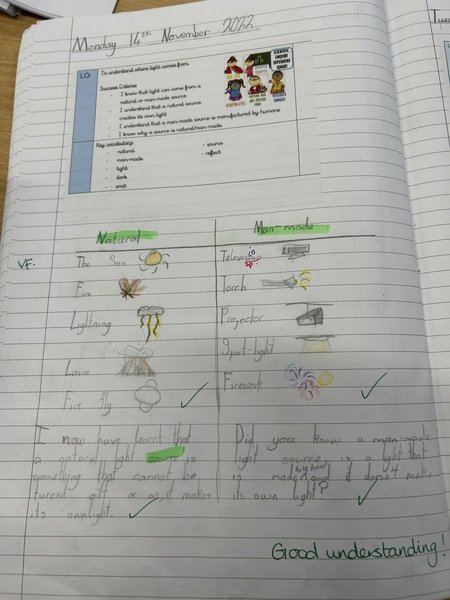 Monday 14th November 2022
Tues
LO:
To understand where light comes from
Success Criteria
- I know that light can come from a
natural or man-made source
- I understand that a natural source
creates its own light
- I understand that a man-made source is manufactured by humans
- I know why a source is natural/man-made.
SCIENTIFIC
ENQUIRY
SUPERHERO
SQUAD
Key vocabulary
- natural
- man-made
- light
- dark
- emit
- source
- reflect
Natural
Man-made
VF.
The Sun
Television
sp.
Fire
Torch
Lightning
Projector
Spot-light
Lava
Firework
Fire fly
I now have learnt that
a natural light source is
something that cannot be
turned off or on, it makes
its own light.
Did you know a man-made
light source is a light that
is made by hand and it dosn't make
its own light?
Good understanding!